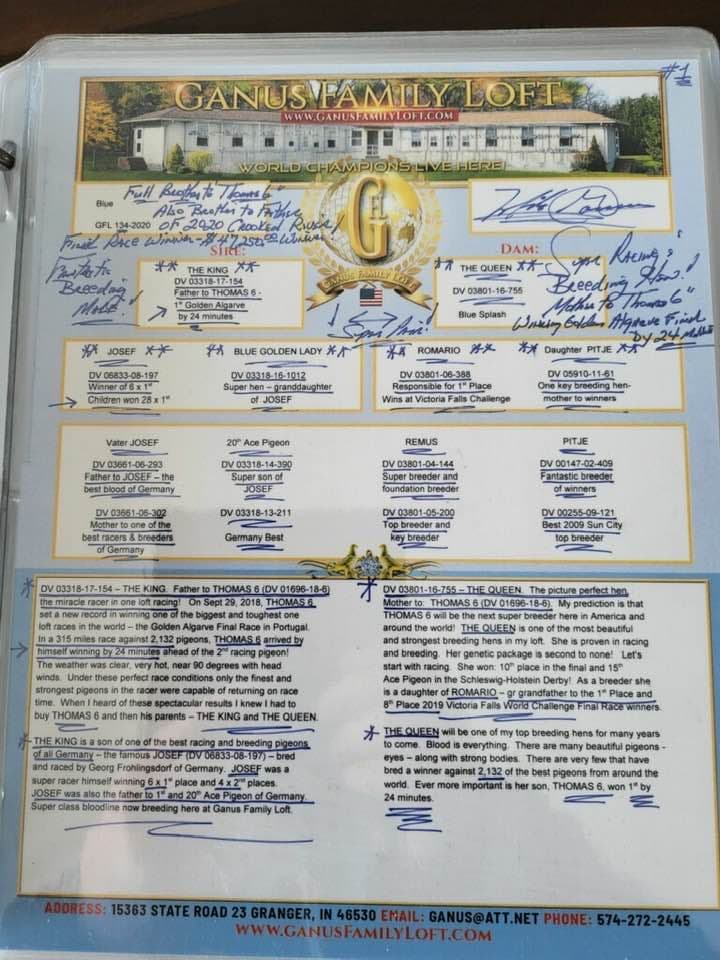 #1
GANUS FAMILY LOFT
WWW.GANUSFAMILYLOFT.COM
WORLD CHAMPIONS LIVE HERE
Blue
Full Brother to Thomas 6"
Also Brother to
GFL 134-2020
of 2020 Crooked River!
Final Race Winner - $47,250.00 Winner!
Brother to
Breeding
Mate!
GFL
GANUS FAMILY LOFT
SIRE:
** THE KING **
DV 03318-17-154
Father to THOMAS 6 -
1st Golden Algarve
by 24 minutes
DAM:
** THE QUEEN **
DV 03801-16-755
Blue Splash
Super Racing &
Breeding Hen!
Mother to Thomas 6"
Winning Golden Algarve Final
by 24 Minutes
Super Pair!
** JOSEF **
DV 06833-08-197
Winner of 6 x 1st
Children won 28 x 1st
** BLUE GOLDEN LADY **
DV 03318-16-1012
Super hen – granddaughter
of JOSEF
** ROMARIO **
DV 03801-06-388
Responsible for 1st Place
Wins at Victoria Falls Challenge
** Daughter PITJE **
DV 05910-11-61
One key breeding hen-
mother to winners
Vater JOSEF
DV 03661-06-293
Father to JOSEF – the
best blood of Germany
20th Ace Pigeon
DV 03318-14-390
Super son of
JOSEF
REMUS
DV 03801-04-144
Super breeder and
foundation breeder
PITJE
DV 00147-02-409
Fantastic breeder
of winners
DV 03661-06-302
Mother to one of the
best racers & breeders
of Germany
DV 03318-13-211
Germany Best
DV 03801-05-200
Top breeder and
key breeder
DV 00255-09-121
Best 2009 Sun City
top breeder
* DV 03318-17-154 – THE KING. Father to THOMAS 6 (DV 01696-18-6)
the miracle racer in one loft racing! On Sept 29, 2018, THOMAS 6
set a new record in winning one of the biggest and toughest one
loft races in the world – the Golden Algarve Final Race in Portugal.
In a 315 miles race against 2,132 pigeons, THOMAS 6 arrived by
himself winning by 24 minutes ahead of the 2nd racing pigeon!
The weather was clear, very hot, near 90 degrees with head
winds. Under these perfect race conditions only the finest and
strongest pigeons in the racer were capable of returning on race
time. When I heard of these spectacular results I knew I had to
buy THOMAS 6 and then his parents – THE KING and THE QUEEN.
* THE KING is a son of one of the best racing and breeding pigeons
of all Germany – the famous JOSEF (DV 06833-08-197) – bred
and raced by Georg Frohlingsdorf of Germany. JOSEF was a
super racer himself winning 6 x 1st place and 4 x 2nd places.
JOSEF was also the father to 1st and 20th Ace Pigeon of Germany.
Super class bloodline now breeding here at Ganus Family Loft.
* DV 03801-16-755 – THE QUEEN. The picture perfect hen.
Mother to: THOMAS 6 (DV 01696-18-6). My prediction is that
THOMAS 6 will be the next super breeder here in America and
around the world! THE QUEEN is one of the most beautiful
and strongest breeding hens in my loft. She is proven in racing
and breeding. Her genetic package is second to none! Let's
start with racing. She won: 10th place in the final and 15th
Ace Pigeon in the Schleswig-Holstein Derby! As a breeder she
is a daughter of ROMARIO – gr grandfather to the 1st Place and
8th Place 2019 Victoria Falls World Challenge Final Race winners.
* THE QUEEN will be one of my top breeding hens for many years
to come. Blood is everything. There are many beautiful pigeons -
eyes – along with strong bodies. There are very few that have
bred a winner against 2,132 of the best pigeons from around the
world. Ever more important is her son, THOMAS 6, won 1st by
24 minutes.
ADDRESS: 15363 STATE ROAD 23 GRANGER, IN 46530 EMAIL: GANUS@ATT.NET PHONE: 574-272-2445
WWW.GANUSFAMILYLOFT.COM